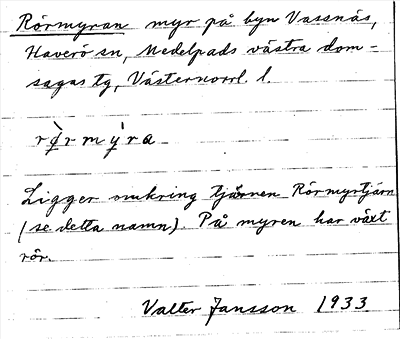 Rörmyran myr på byn Vassnäs,
Haverö sn, Medelpads västra dom-
sagas tg, Västernorrl. l.
rǫ̀rmỳ̨ra
Ligger omkring tjärnen Rörmyrtjärn
(se detta namn). På myren har växt
rör.
Valter Jansson 1933